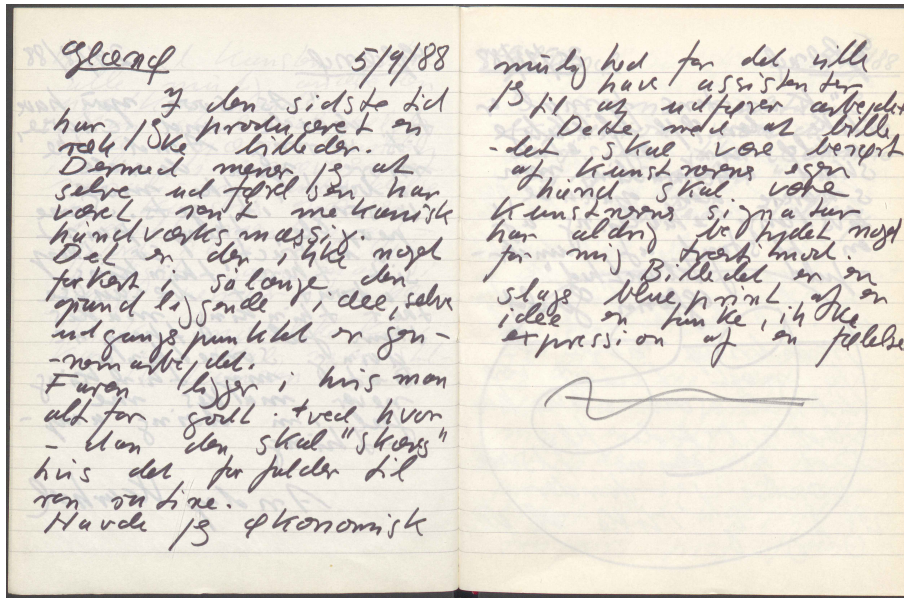 Øland 5/9/88
I den sidste tid
har jeg produceret en
række billeder.
Dermed mener jeg at
selve udførelsen har
været rent mekanisk
håndværksmæssig.
Det er der ikke noget
forkert i sålænge den
grundliggende idee, selve
udgangspunktet er gen-
-nemarbejdet.
Faren ligger i hvis man
alt for godt ved hvor-
-dan den skal "skæres"
hvis det forfalder til
ren rutine.
Havde jeg økonomisk
mulighed for det ville
jeg have assistenter
til at udfører arbejdet
Dette med at bille-
-det skal være berørt
af kunstnerens egen
hånd skal være
kunstnerens signatur
har aldrig betydet noget
for mig tværtimod.
Billedet er en
slags blueprint af en
idee en tanke, ikke
expression af en følelse